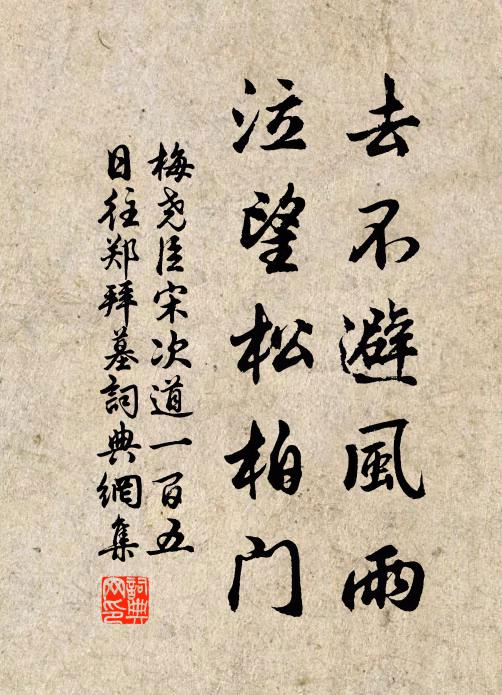 去不避風雨
泣望松柏门
梅尧臣宋次道一百五
日往郑拜墓詞典網集
詞典
网印